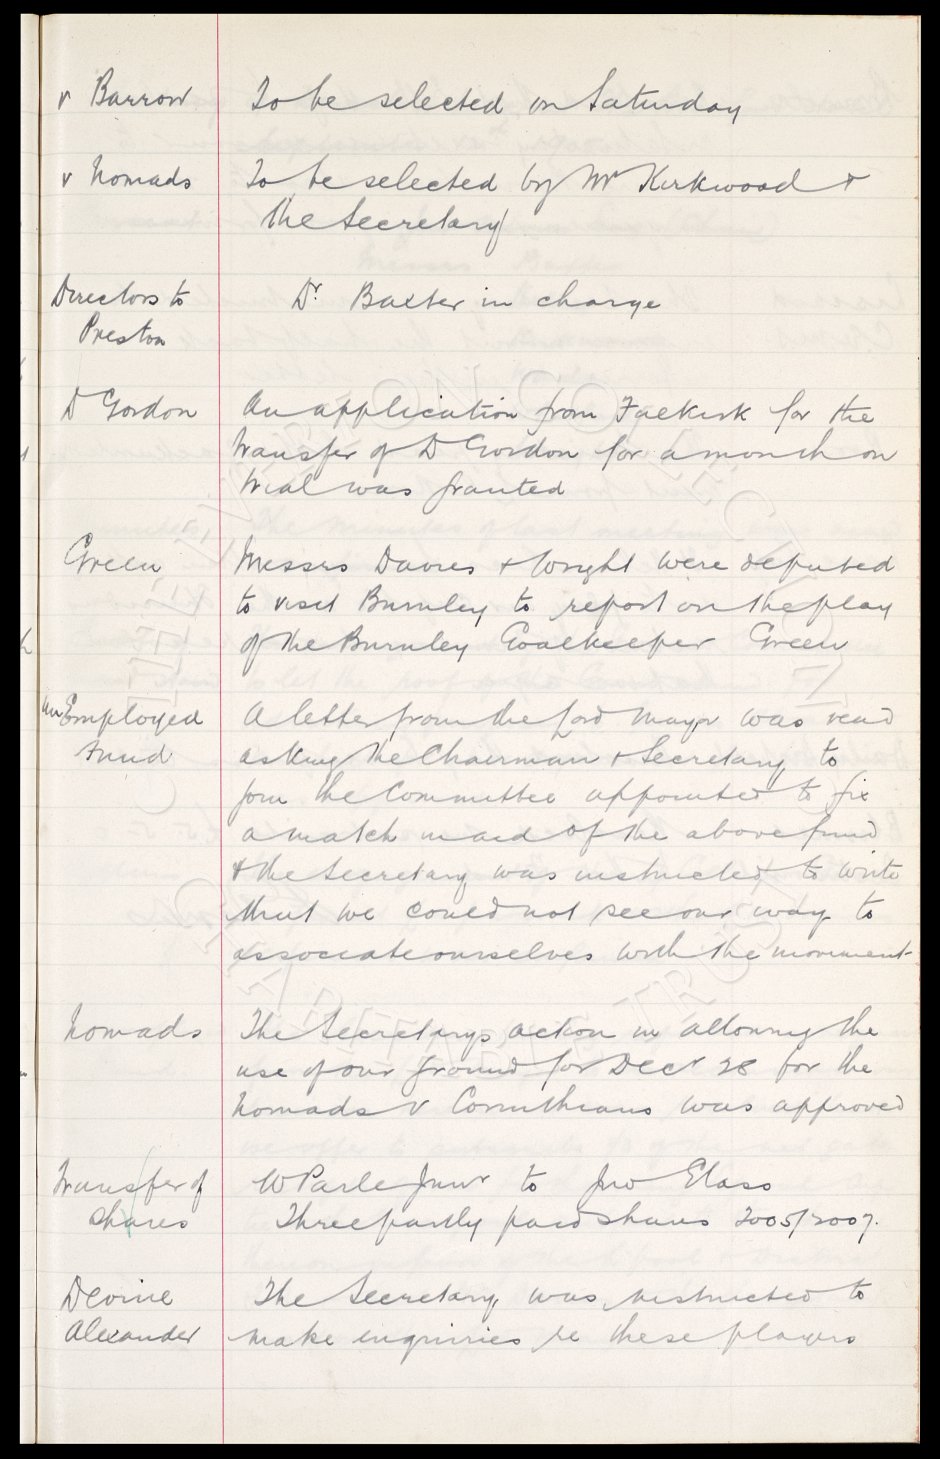 v Barrow To be selected on Saturday
v Nomads To be selected by Mr Kirkwood &
the Secretary
Directors to Dr. Baxter in charge
Preston
D Gordon An application from Falkirk for the
transfer of D Gordon for a month on
trial was granted
Green Messrs Davies & Wright were deputed
to visit Burnley to report on the play
of the Burnley Goalkeeper Green
unEmployed A letter from the Lord Mayor was read
Fund asking the Chairman & Secretary to
join the Committee appointed to fix
a match in aid of the above fund
& the Secretary was instructed to write
that we could not see our way to
associate ourselves with the movement
Nomads The Secretarys action in allowing the
use of our ground for Decr 28 for the
Nomads v Corinthians was approved
Transfer of W Parle Junr to Jno Elass
Shares Three partly paid shares 2005/2007.
Devine The Secretary was instructed to
Alexander make inquiries re these players